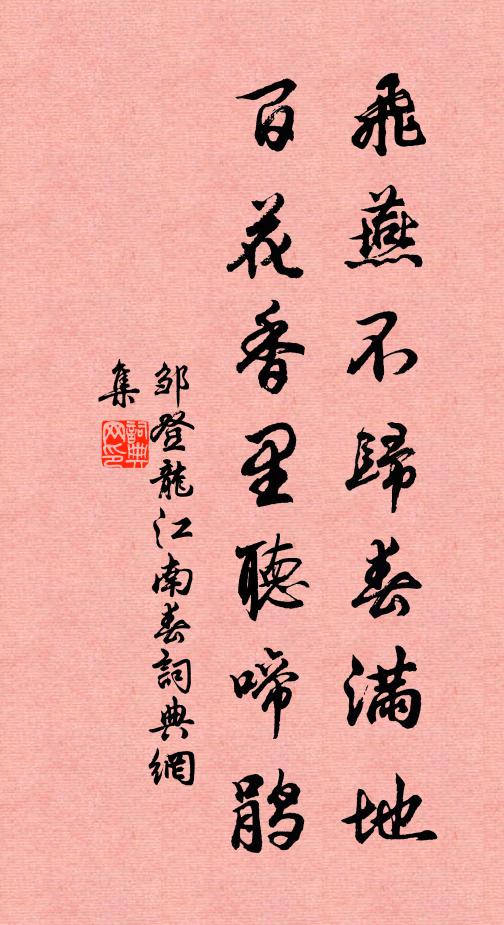 飛燕不歸春滿地
百花香里聽啼鹃
邹登龍江南春詞典網
集
詞典网印